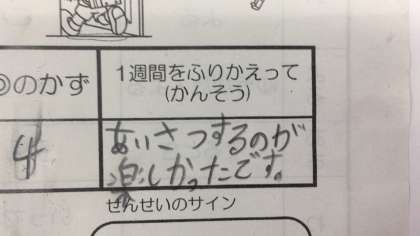 のかず
1週間をふりかえって
(かんそう)
4
あいさつするのが
楽しかったです。
せんせいのサイン